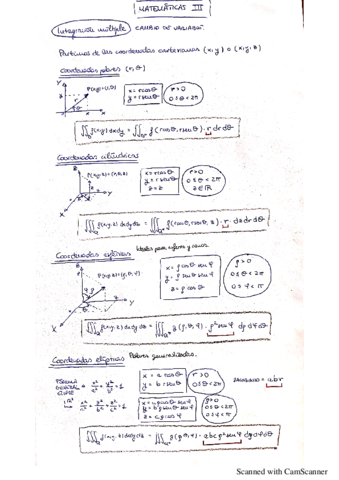 MATEMÁTICAS III
Integración múltiple CAMBIO DE VARIABLE.
Partimos de las coordenadas cartesianas (x,y) o (x,y,z)
Coordenadas polares (r,θ)
x = r cosθ
y = r senθ
r>0
0≤θ<2π
∬ f(x,y) dxdy = ∬ f(r cosθ, r senθ) · r dr dθ
Coordenadas cilíndricas
x = r cosθ
y = r senθ
z = z
r>0
0≤θ<2π
z∈ℝ
∭ f(x,y,z) dxdydz = ∭ f(r cosθ, r senθ, z) · r · dz dr dθ
Coordenadas esféricas Ideales para esferas y conos.
P(x,y,z)=(ρ,θ,φ)
x = ρ cosθ senφ
y = ρ senθ senφ
z = ρ cosφ
ρ>0
0≤θ<2π
0≤φ<π
∭ f(x,y,z) dxdydz = ∭ f(ρ,θ,φ) · ρ² senφ dρ dφ dθ
Coordenadas elípticas Polares generalizadas.
x = a r cosθ
y = b r senθ
r>0
0≤θ<2π
= abr
x = aρ cosθ senφ
y = bρ senθ senφ
z = cρ cosφ
ρ>0
0≤θ<2π
0≤φ<π
∭ f(x,y,z) dxdydz = ∭ f(ρ,θ,φ) · abc ρ² senφ dρ dφ dθ
Scanned with CamScanner